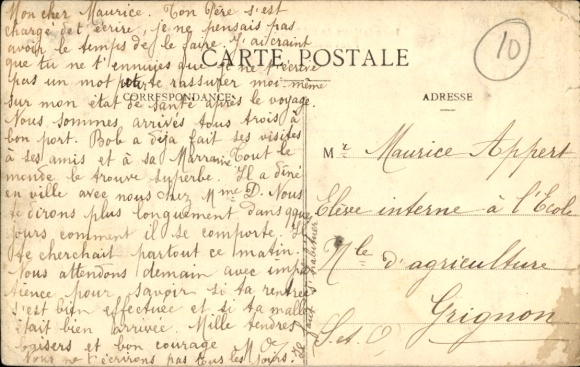 Mon cher Maurice. Ton Père s'est
chargé de t'écrire, je ne pensais pas
avoir le temps de le faire. J'ai craint
que tu ne t'ennuies que je ne t'écrive
pas un mot pour te rassurer moi même
sur mon état de santé après le voyage.
Nous sommes arrivés tous trois à
bon port. Bob a déjà fait ses visites
à ses amis et à sa Marraine Tout le
monde le trouve superbe. Il a dîné
en ville avec nous chez Mme D. Nous
te dirons plus longuement dans qque
jours comment il se comporte. Il
te cherchait partout ce matin.
Nous attendons demain avec impa
tience pour savoir si ta rentrée
s'est bien effectuée et si ta malle
était bien arrivée. Mille tendres
baisers et bon courage
Nous ne t'écrirons pas tous les jours.
Il faut s'habituer
CARTE POSTALE
CORRESPONDANCE
ADRESSE
10
Mr Maurice Appert
Elève interne à l'Ecole
Nle d'agriculture
Grignon
S. et O.